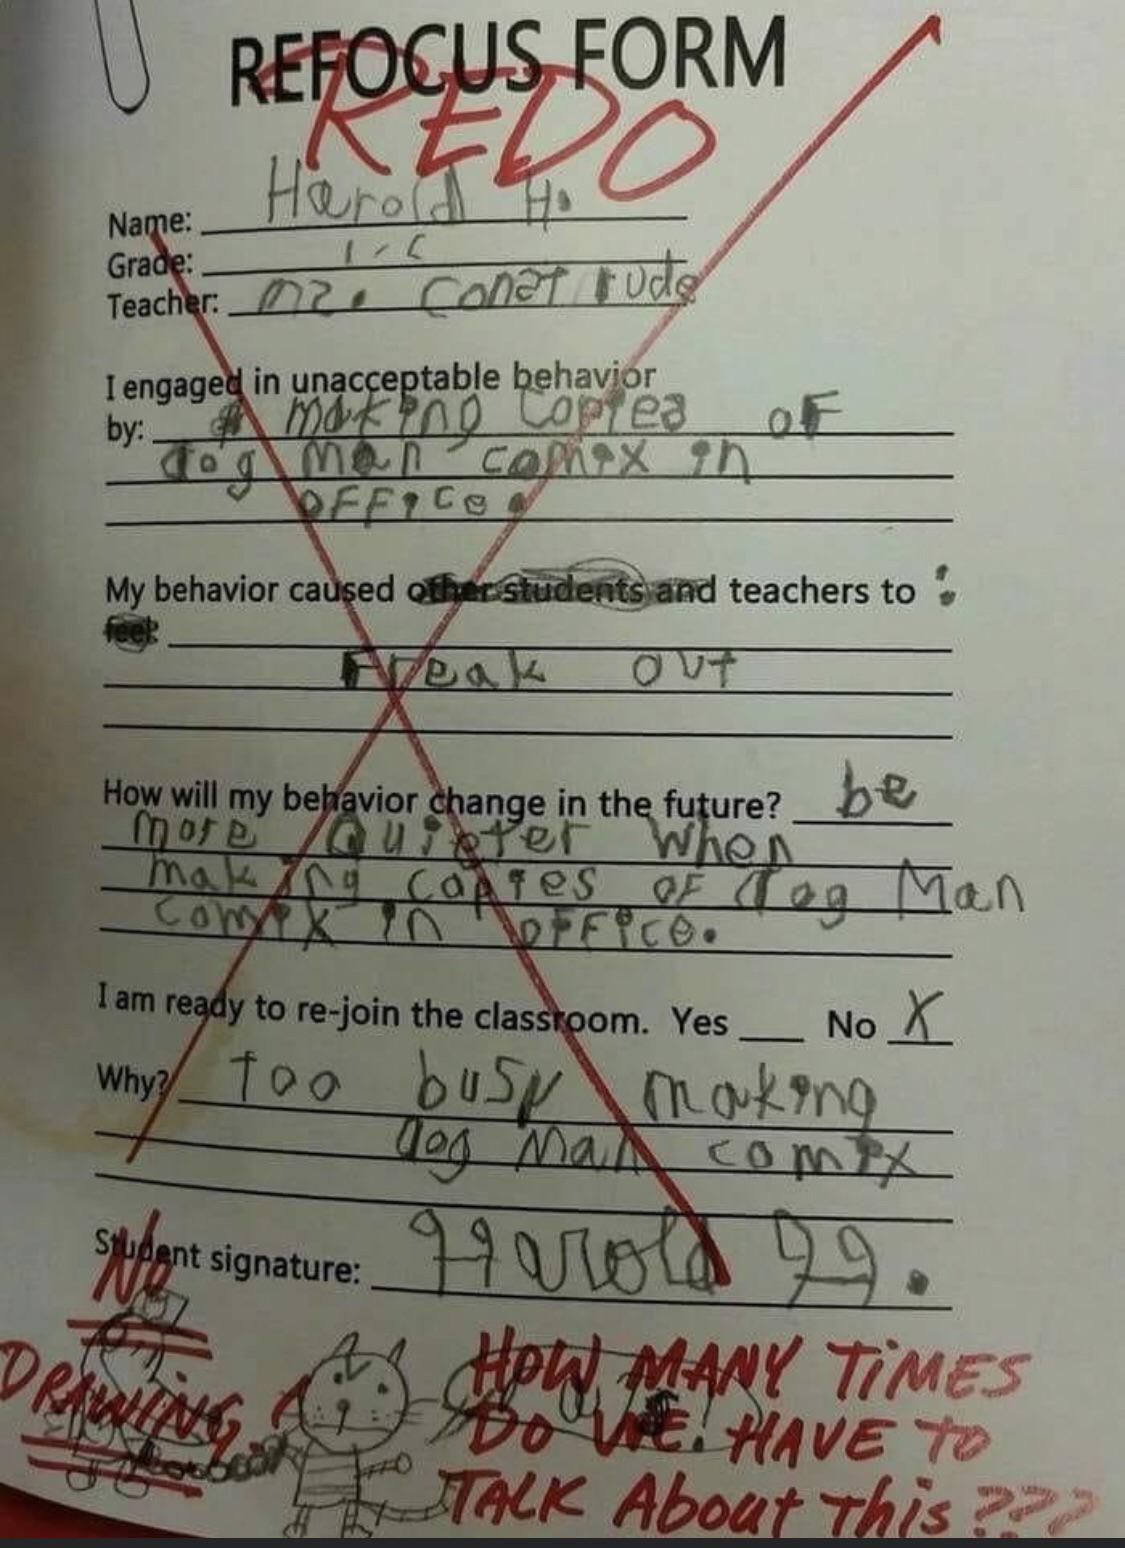 REFOCUS FORM
REDO
Name: Harold H.
Grade: 1-C
Teacher: Ms. Construde
I engaged in unacceptable behavior
by: making copies of
dog man comix in
office.
My behavior caused other students and teachers to :
feel:
Freak out
How will my behavior change in the future? be
more Quieter when
making copies of dog Man
comix in office.
I am ready to re-join the classroom. Yes ___ No X
Why? Too busy making
dog Man comix
Student signature: Harold H.
No
DRAWING
HOW MANY TiMES
DO WE HAVE TO
TALK About This???